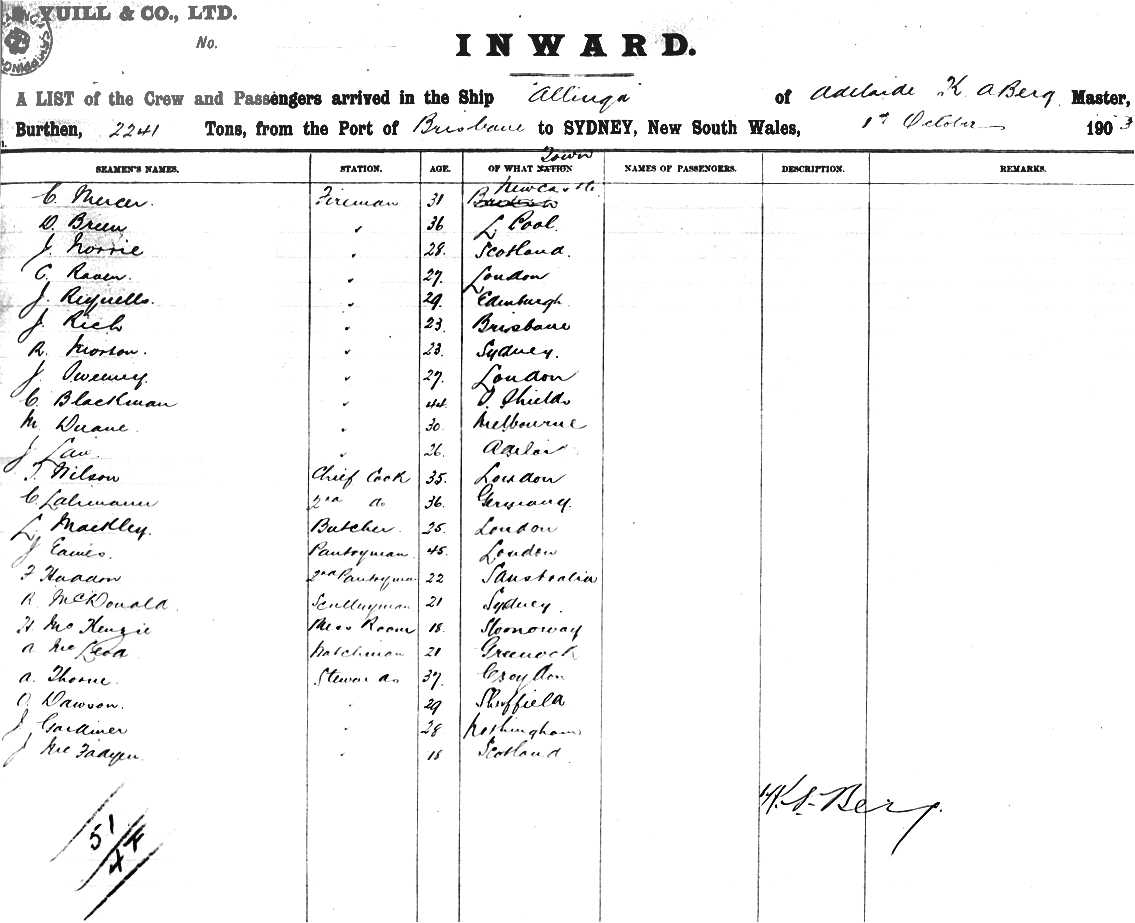 YUILL & CO., LTD.
No.
INWARD.
A LIST of the Crew and Passengers arrived in the Ship "Allinga" of Adelaide K A Berg Master,
Burthen, 2241 Tons, from the Port of Brisbane to SYDNEY, New South Wales, 1st October 1903
Town
SEAMEN'S NAMES. STATION. AGE. OF WHAT NATION NAMES OF PASSENGERS. DESCRIPTION. REMARKS.
Newcastle
C. Mercer. Fireman 31
D. Breen " 36 L. Pool.
J. Norrie " 28 Scotland.
C. Raven. " 27. London
J. " 29. Edinburgh.
J. Rich " 23. Brisbane
R. Morton. " 23. Sydney.
J. Sweeney " 27. London
C. Blackman " 44. S. Shields
M Duane. " 30. Melbourne
J Law " 26. Adelai
T. Wilson Chief Cook 35. London
C. Lahmann 2nd do 36. Germany.
L. Mackley. Butcher. 25. London
J Eames. Pantryman. 45. London
F Haddon 2nd Pantryman 22 S australia
R. McDonald. Sculleryman 21 Sydney.
H McKenzie Mess Room 18. Stornoway
A McLeod Watchman 21 Greenock
A. Thorne. Stewards 37. Croydon
Dawson. " 29 Sheffield
J Gardiner " 28 Nottingham
J McFadyen " 18 Scotland
K. A. Berg.
51/44